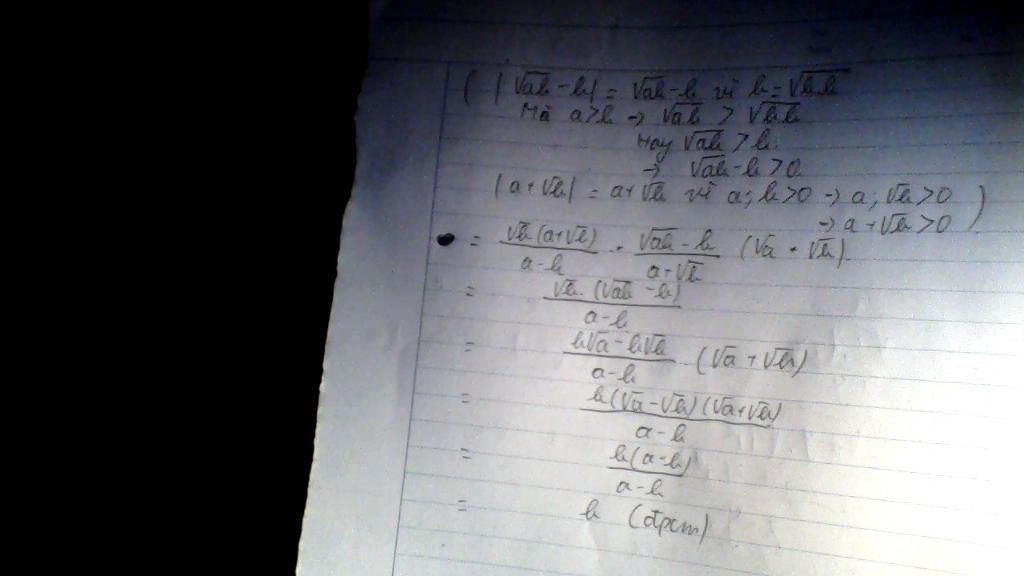 ( |√ab - b| = √ab - b vì b = √b.b
Mà a > b → √ab > √b.b
Hay √ab > b.
→ √ab - b > 0.
|a + √b| = a + √b vì a; b > 0 → a; √b > 0
→ a + √b > 0 )
= √b(a+√b)/a-b . √ab - b/a+√b (√a + √b).
= √b.(√ab - b)/a-b
= b√a - b√b/a-b (√a + √b)
= b(√a - √b)(√a+√b)/a-b
= b(a-b)/a-b
= b (đpcm)